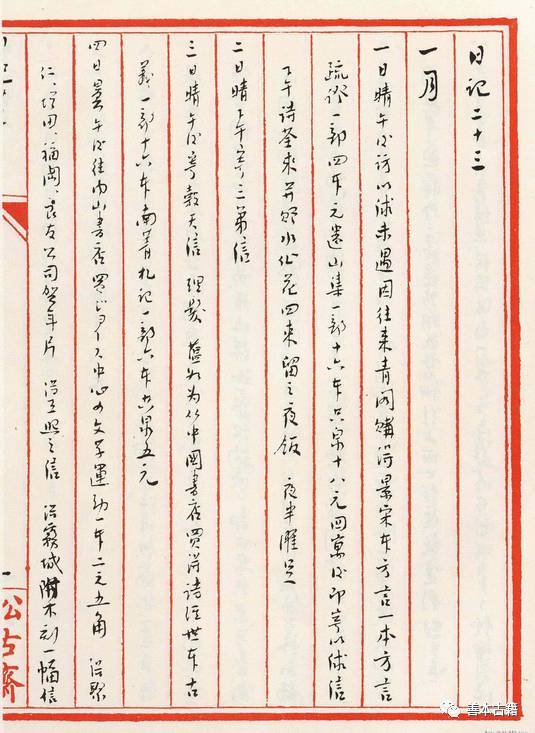 日记二十三
一月
一日晴午后访以俅未遇因往来青阁購得景宋本方言一本方言
疏证一部四本元遗山集一部十六本共泉十八元回寓后即寄以俅信
下午诗荃来并贈水仙花四束留之夜饭 夜半濯足
二日晴下午寄三弟信
三日晴午后寄穀天信 理髮 蕴如为从中國書店買得诗经世本古
義一部十六本南菁札记一部六本共泉五元
四日曇午后往内山書店買ジョイス中心の文学運動一本二元五角 得聚
仁、增田、福岡、良友公司贺年片 得王熙之信 得霧城附木刻一幅信
松古齋
善本古籍